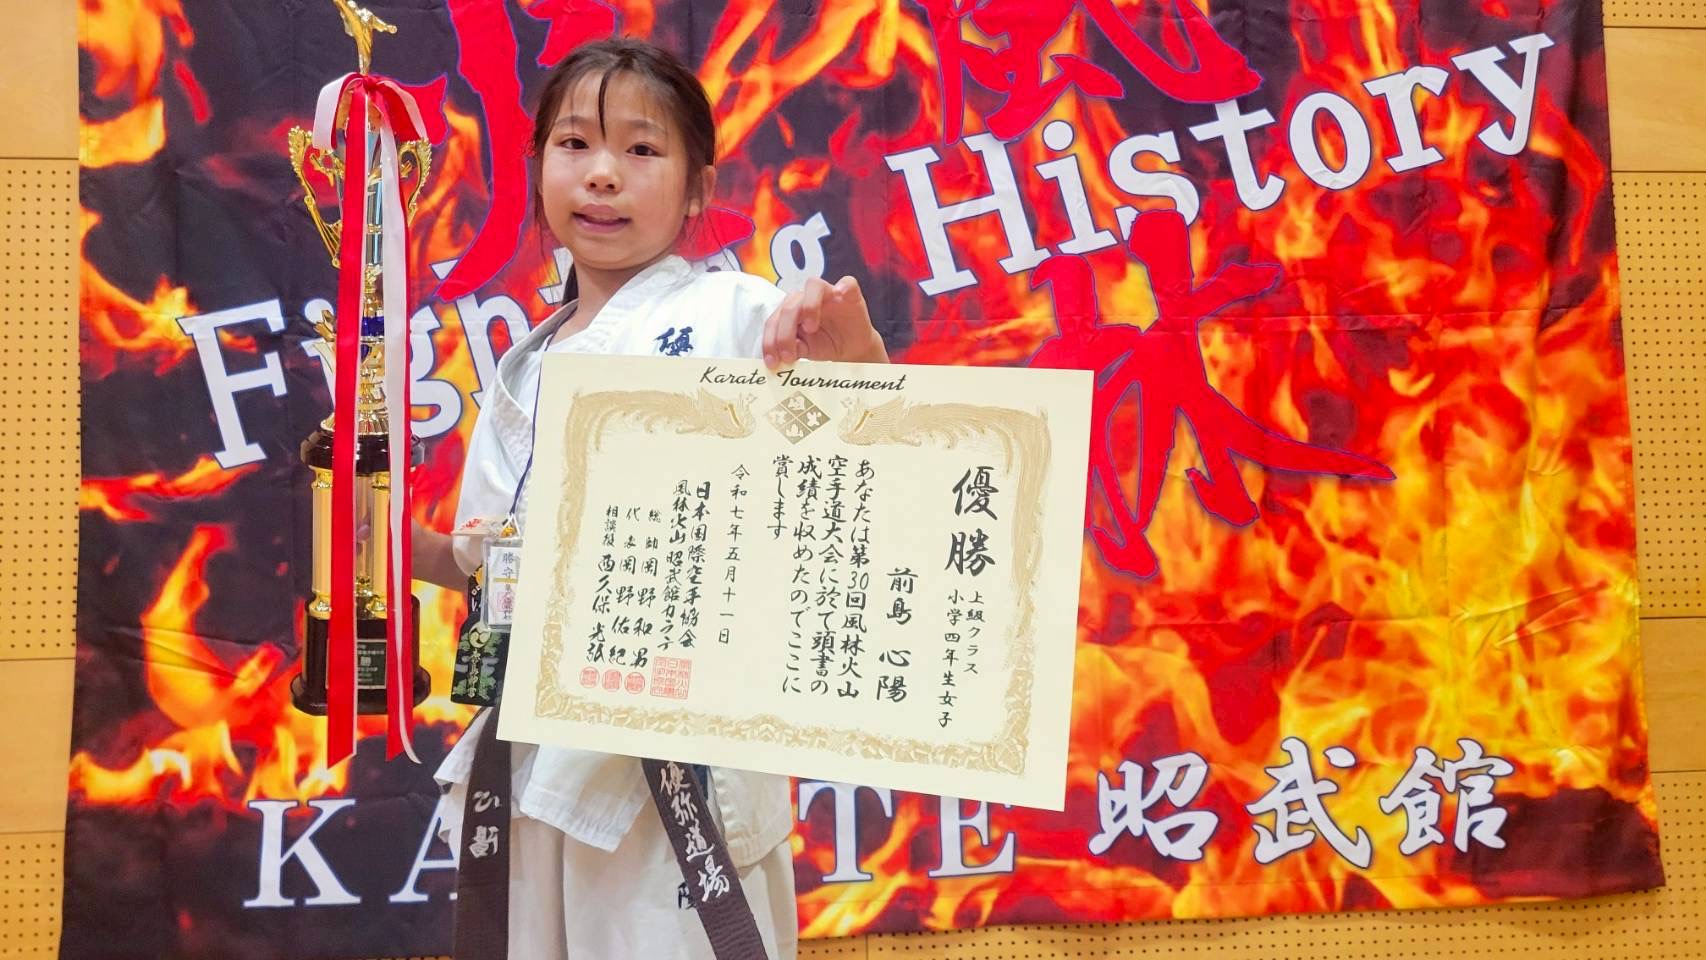 Fighting History
林
KARATE 昭武館
優
Karate Tournament
優勝
上級クラス
小学四年生女子
前島 心陽
あなたは第30回風林火山
空手道大会に於て頭書の
成績を収めたのでここに
賞します
令和七年五月十一日
日本国際空手協会
風林火山 昭武館カラテ
総師 岡野和男
代表 岡野佑紀
相談役 西久保光紙
勝守
優弥道場
心陽